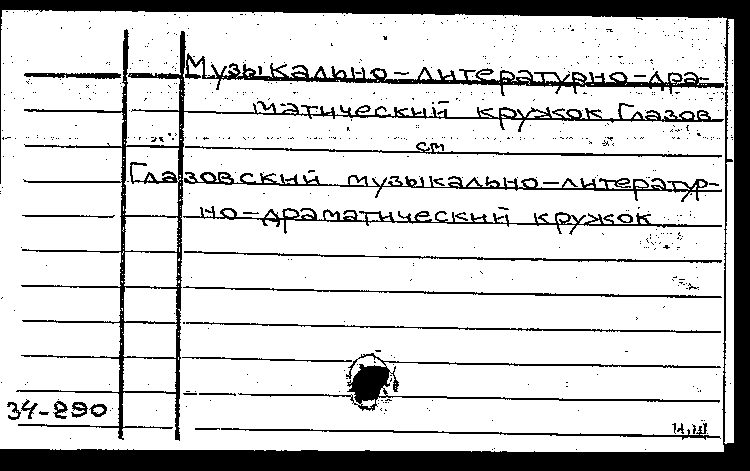 Музыкально-литературно-дра-
матический кружок. Глазов
см.
Глазовский музыкально-литератур-
но-драматический кружок
34-290